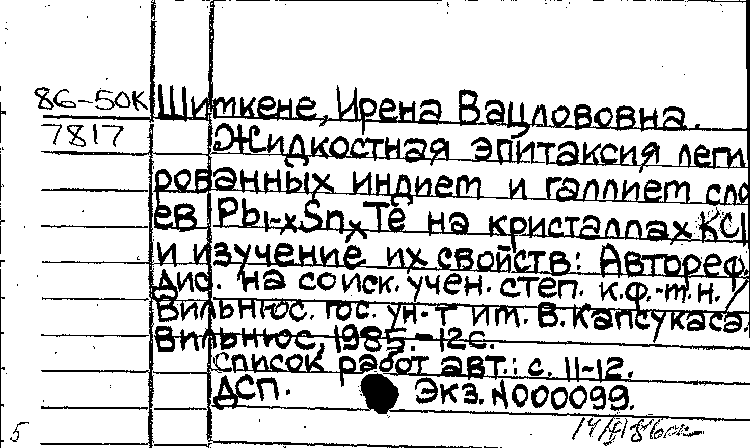 86-50К Шиткене, Ирена Вацлововна.
7817 Жидкостная эпитаксия леги
рованных индием и галлием сло
ев Pb1-xSnxTe на кристаллах KCl
и изучение их свойств: Автореф.
дис. на соиск. учен. степ. к.ф.-т.н. /
Вильнюс. гос. ун-т им. В. Капсукаса.
Вильнюс, 1985.-12с.
Список работ авт.: с. 11-12.
ДСП. Экз. N000099.
5